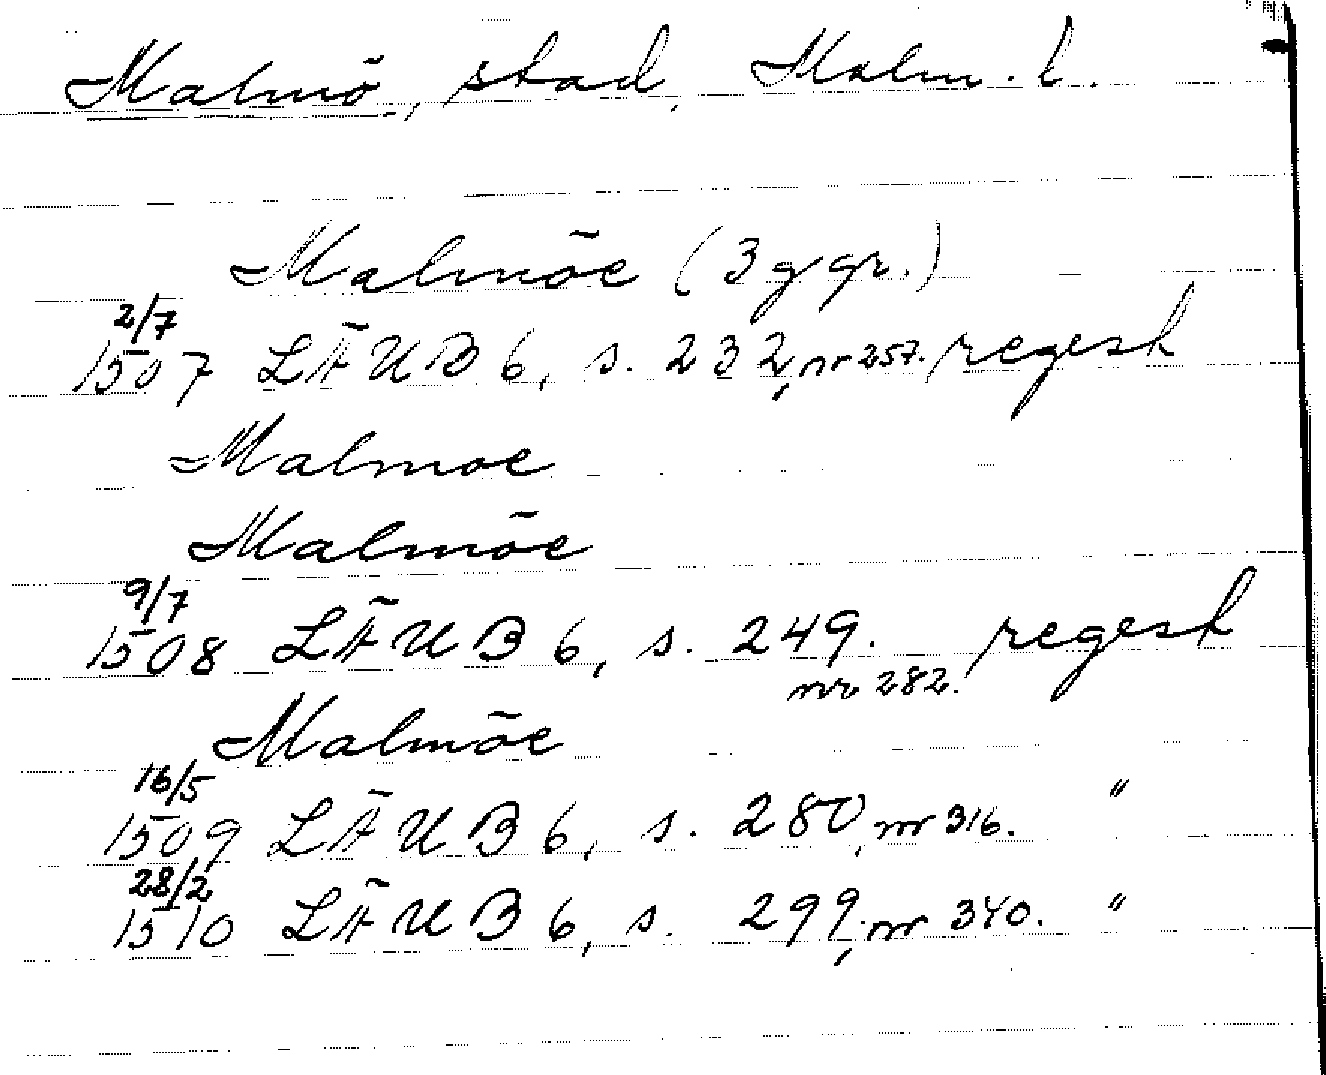 Malmö, stad, Malm. l.
Malmöe (3 ggr.)
2/7
1507 LÄUB 6, s. 232, nr 257. regest
Malmoe
Malmöe
9/7
1508 LÄUB 6, s. 249. regest
nr 282.
Malmöe
16/5
1509 LÄUB 6, s. 280, nr 316. "
28/2
1510 LÄUB 6, s. 299, nr 340. "